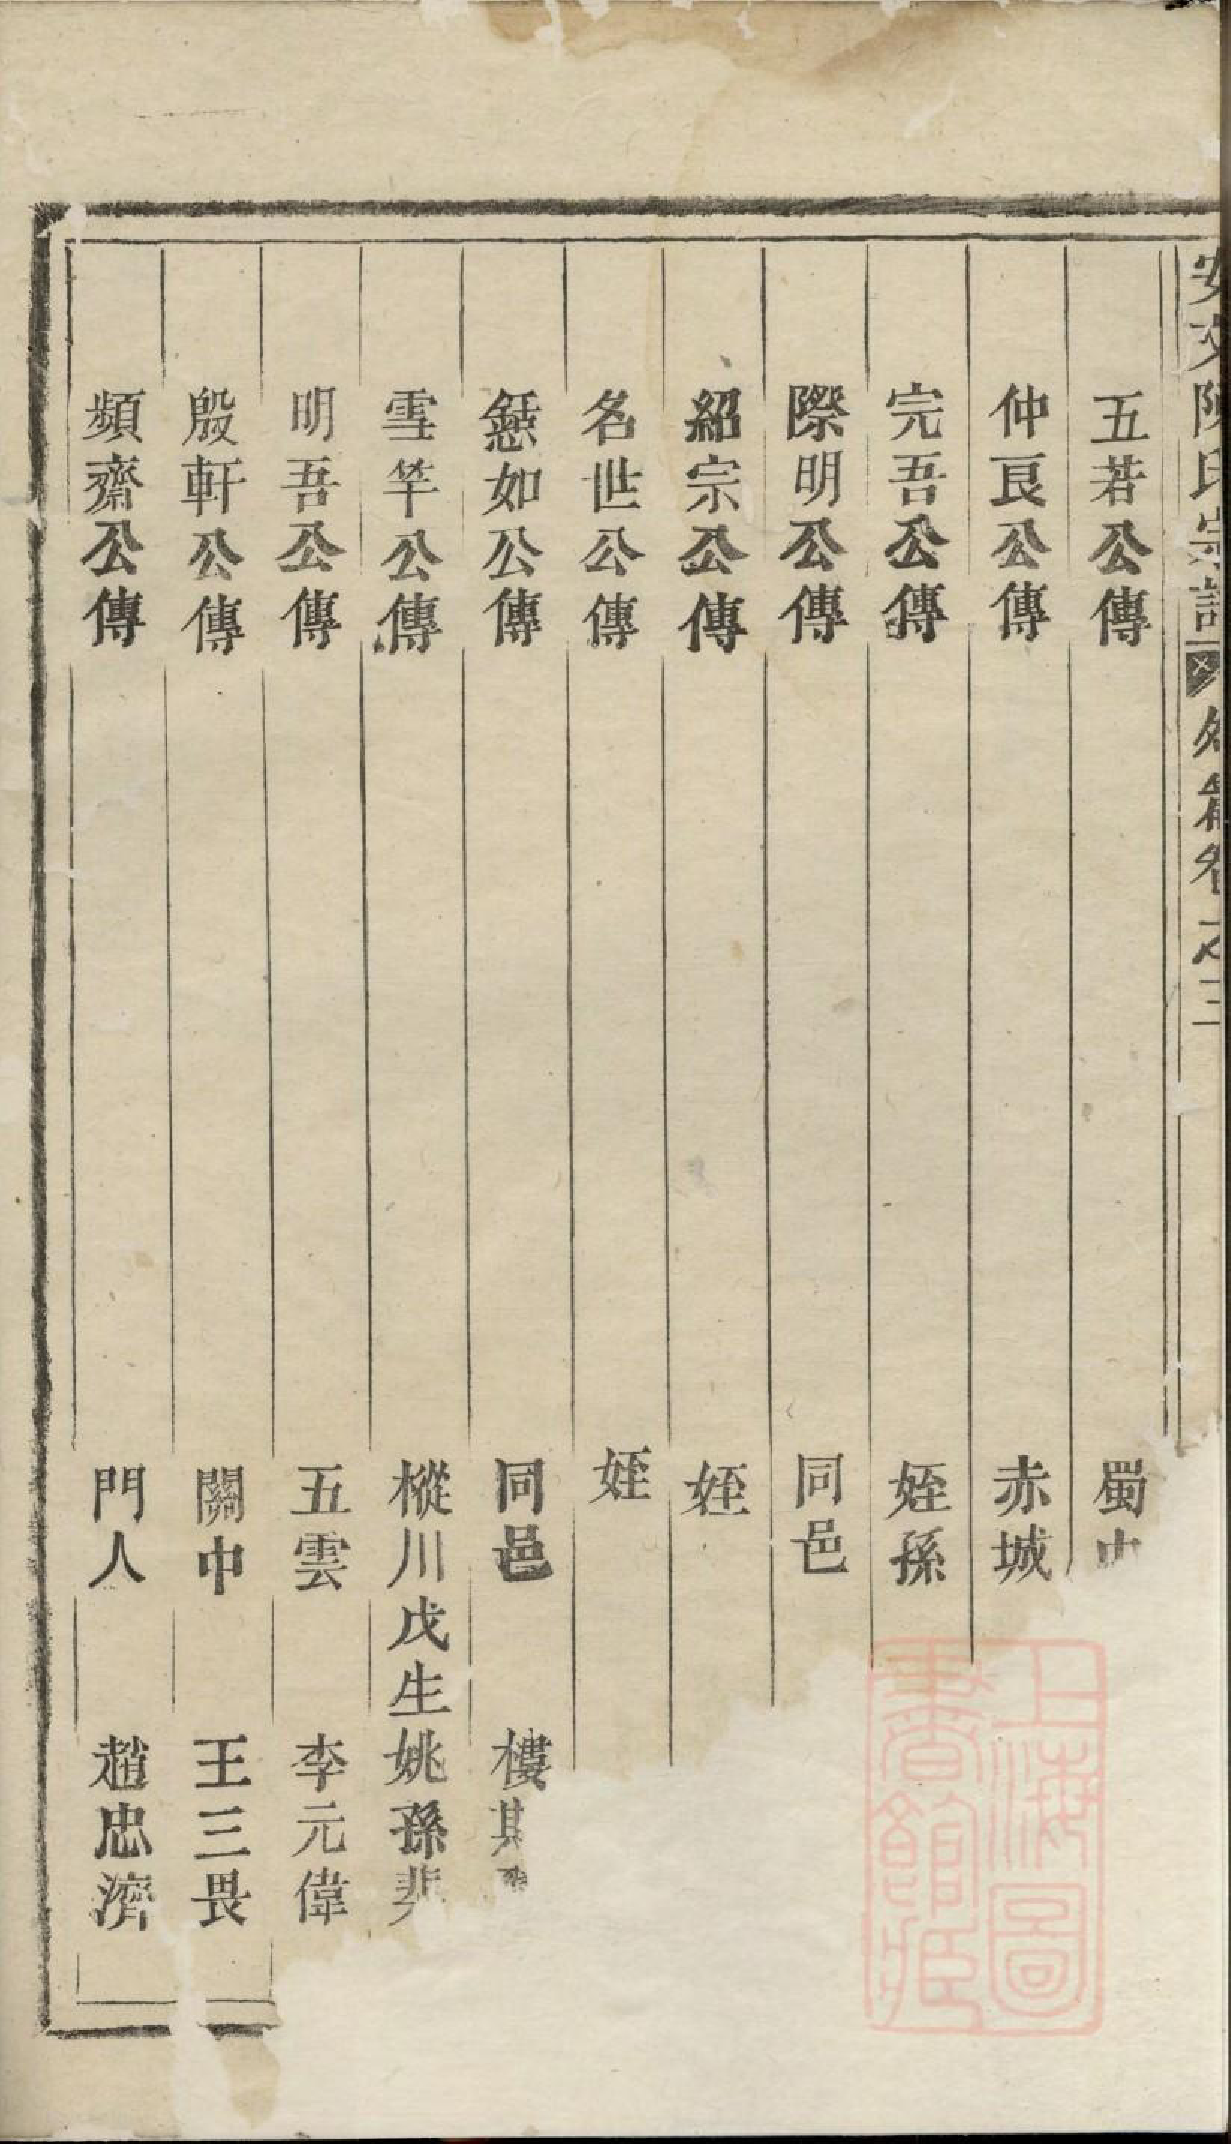 安文陳氏宗譜 外篇卷之三
五若公傳 蜀中
仲良公傳 赤城
完吾公傳 姪孫
際明公傳 同邑
紹宗公傳 姪
名世公傳 姪
如公傳 同邑 樓其
雪竿公傳 樅川戊生姚孫棐
明吾公傳 五雲 李元偉
殷軒公傳 關中 王三畏
頻齋公傳 門人 趙忠濟
上海圖書館藏